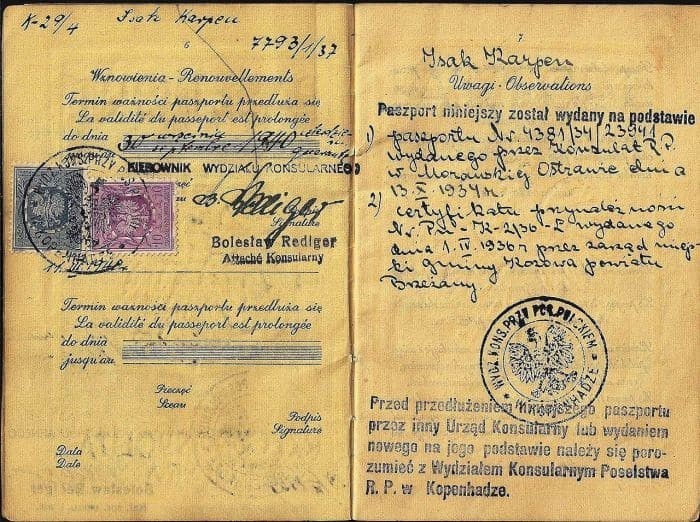 K-29/4 Isak Karpen
6
7793/1/37
Wznowienia - Renouvellements
Termin ważności paszportu przedłuża się
La validité du passeport est prolongée
do dnia 30 września 1940
jusqu'au septembre
KIEROWNIK WYDZIAŁU KONSULARNEGO
Signature
Bolesław Rediger
Attaché Konsularny
11. III
Termin ważności paszportu przedłuża się
La validité du passeport est prolongée
do dnia
jusqu'au
Pieczęć
Sceau
Podpis
Signature
Data
Date
7
Isak Karpen
Uwagi - Observations
Paszport niniejszy został wydany na podstawie
1) paszportu Nr. 4381/34/23941
wydanego przez Konsulat R.P.
w Morawskiej Ostrawie dnia
13. X 1934 r.
2) certyfikatu przynależności
Nr. Pas-K-2/36-L wydanego
dnia 1. IV 1936 r przez zarząd miej-
ski gminy Kozowa powiatu
Brzeżany.
WYDZ. KONS. PRZY POS. POLSKIEM
W KOPENHADZE
Przed przedłużeniem niniejszego paszportu
przez inny Urząd Konsularny lub wydaniem
nowego na jego podstawie należy się poro-
zumieć z Wydziałem Konsularnym Poselstwa
R. P. w Kopenhadze.